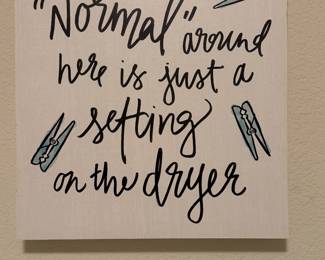 "Normal" around
here is just a
setting
on the dryer